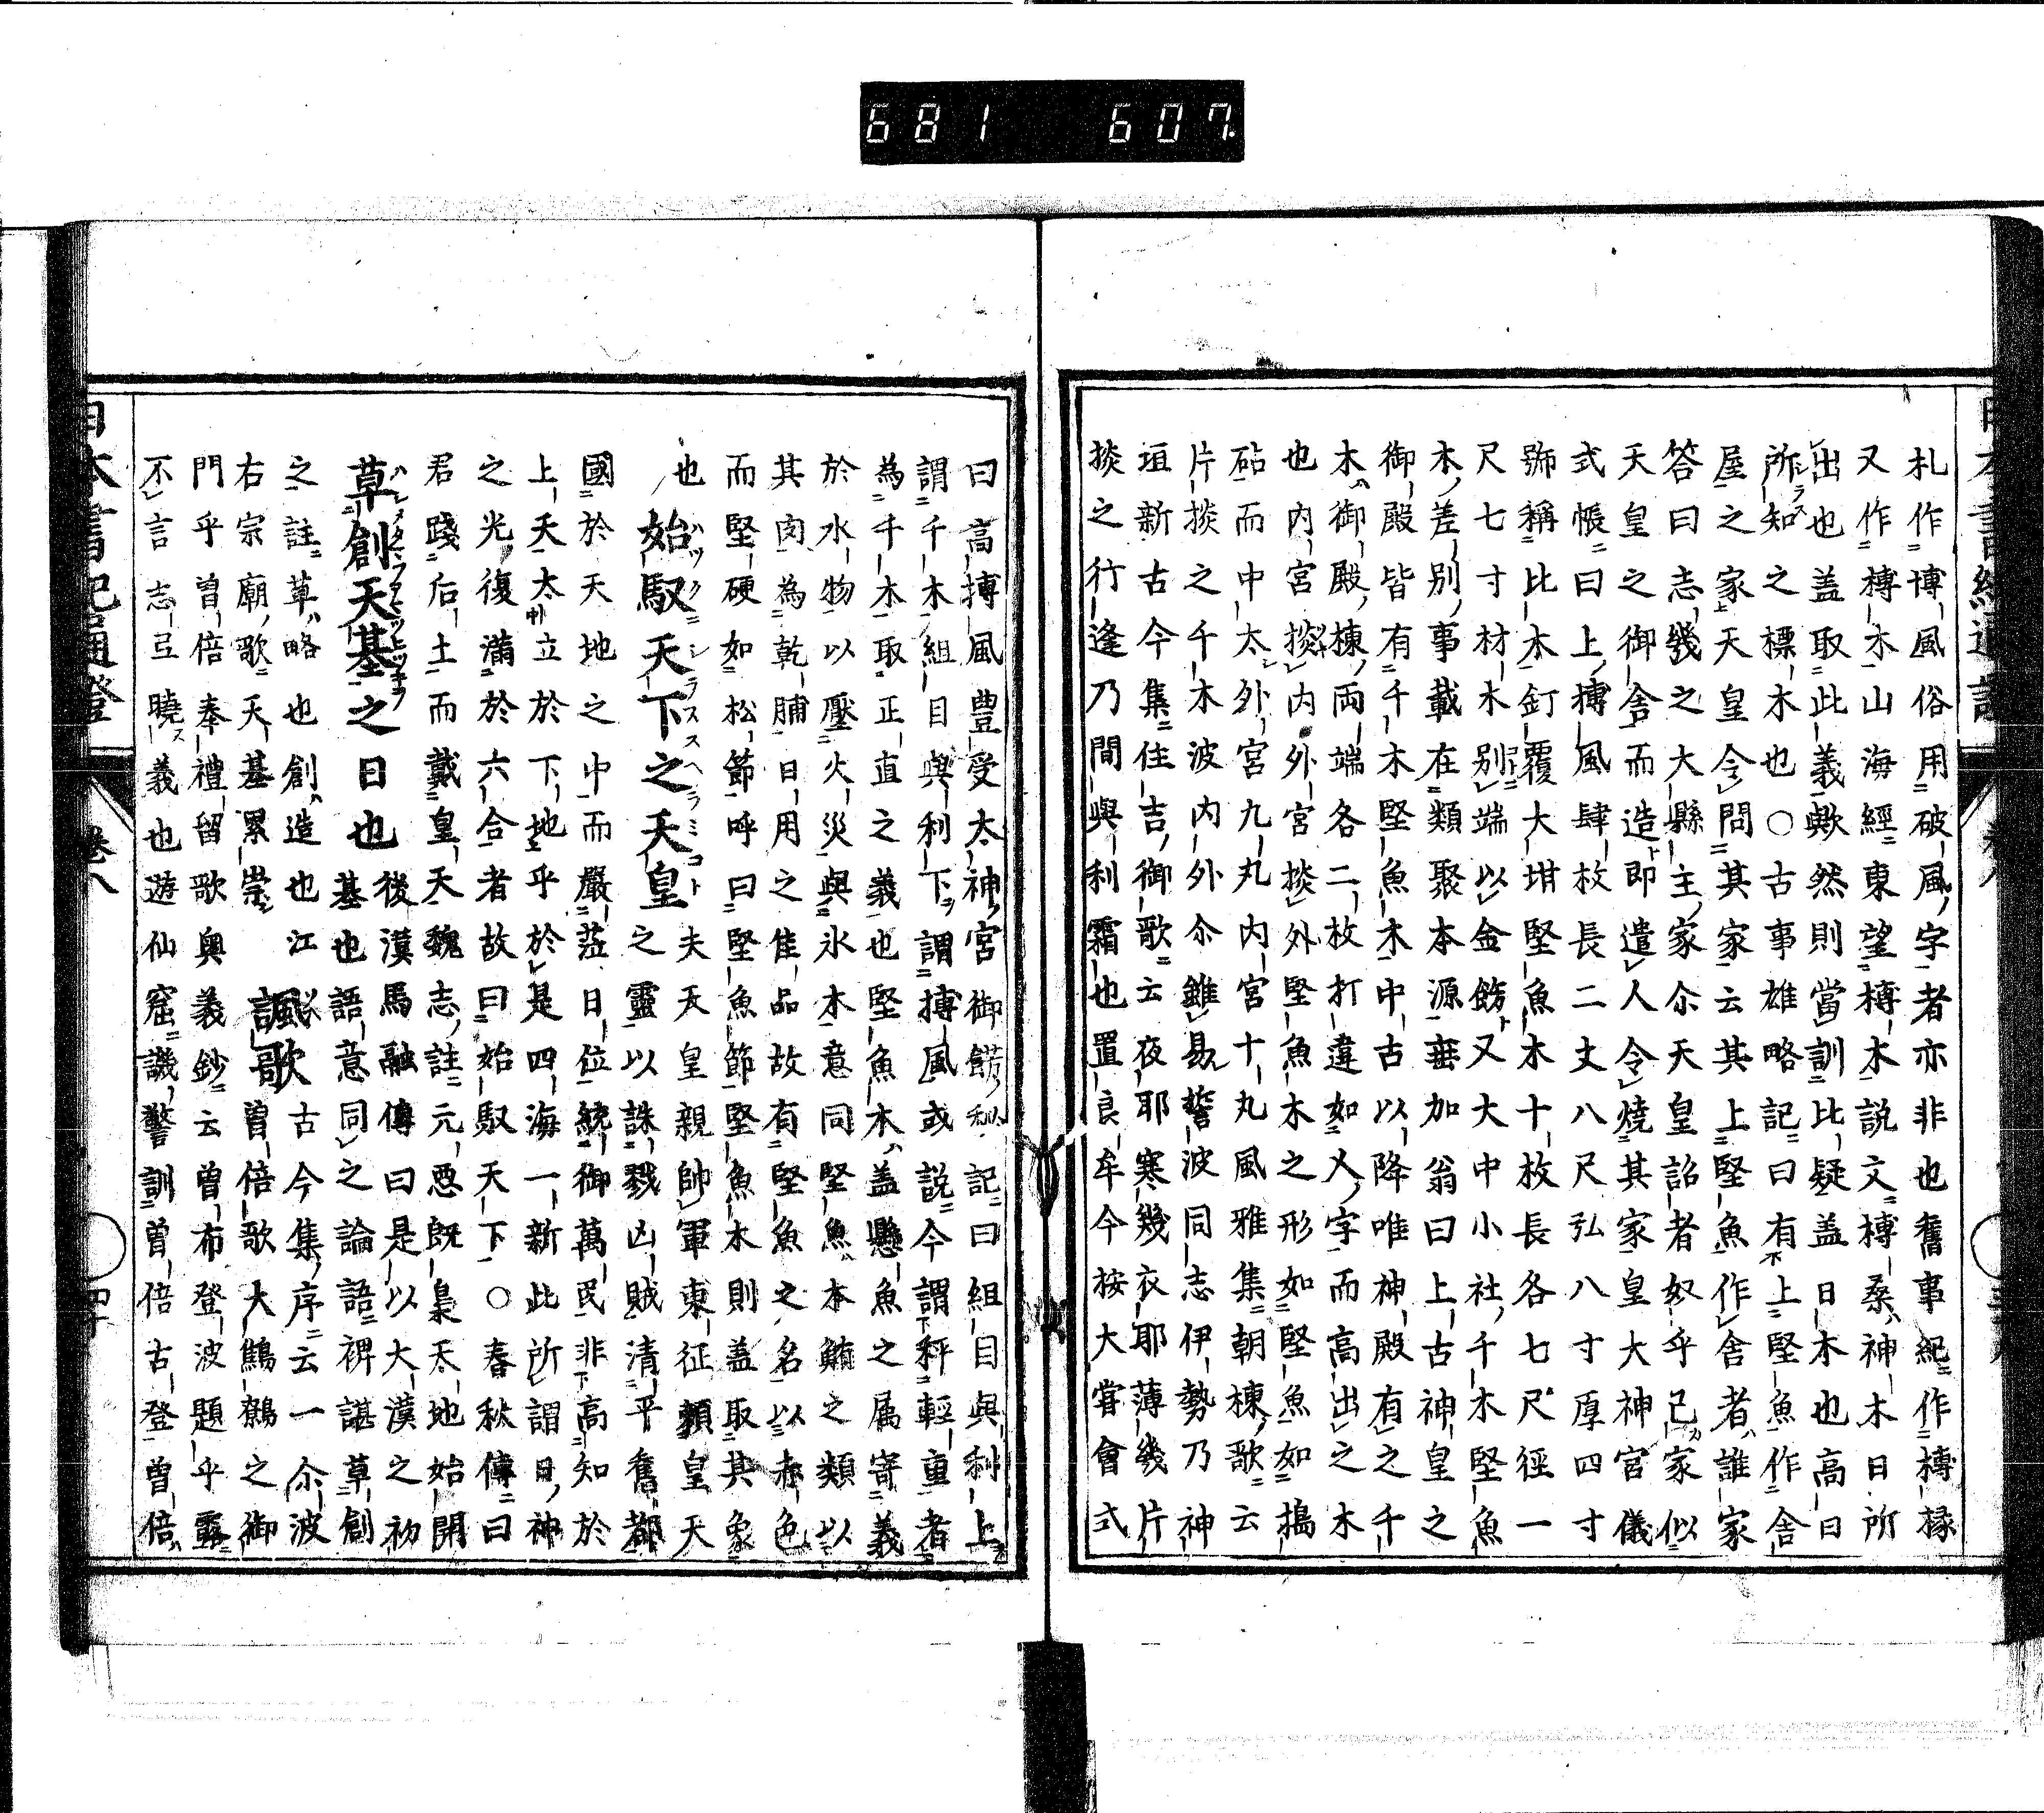 681 607
札作博風俗用破風字者亦非也舊事紀作榑椽
又作榑木山海經東望榑木説文榑桑神木日所
出也盖取此義歟然則當訓比疑盖日木也高日
所知之標木也○古事雄略記曰有上堅魚作舎
屋之家天皇令問其家云其上堅魚作舎者誰家
答曰志幾之大縣主家尒天皇詔者奴乎己家似
天皇之御舎而造即遣人令燒其家皇大神宮儀
式帳曰上搏風肆枚長二丈八尺弘八寸厚四寸
號稱比木釘覆大坩堅魚木十枚長各七尺徑一
尺七寸材木別端以金餝又大中小社千木堅魚
木差別事載在類聚本源垂加翁曰上古神皇之
御殿皆有千木堅魚木中古以降唯神殿有之千
木御殿棟兩端各二枚打違如乂字而高出之木
也内宮掞内外宮掞外堅魚木之形如堅魚如搗
砧而中太外宮九丸内宮十丸風雅集朝棟歌云
片掞之千木波内外尒雖易誓波同志伊勢乃神
垣新古今集住吉御歌云夜耶寒幾衣耶薄幾片
掞之行逢乃間與利霜也置良牟今按大甞會式
日本書紀通證 卷八 四十
曰高搏風豊受太神宮御餝秘記曰組目與利上
謂千木組目與利下謂搏風或説今謂秤輕重者
為千木取正直之義也堅魚木盖懸魚之属寄義
於水物以壓火災與氷木意同堅魚本鮪之類以
其肉為乾脯日用之佳品故有堅魚之名以赤色
而堅硬如松節呼曰堅魚節堅魚木則盖取其象
也
始馭天下之天皇 夫天皇親帥軍東征頼皇天
之靈以誅戮凶賊清平舊都
國於天地之中而嚴莅日位統御萬民非高知於
上天太立於下地乎於是四海一新此所謂日神
之光復滿於六合者故曰始馭天下○春秋傳曰
君踐后土而戴皇天魏志註元惡既梟天地始開
草創天基之日也 後漢馬融傳曰是以大漢之初
基也語意同之論語裨諶草創
之註草略也創造也江
諷歌 古今集序云一尒波
右宗廟歌天基累崇 曽倍歌大鷦鷯之御
門乎曽倍奉禮留歌奥義鈔云曽布登波題乎露
不言志弖曉義也遊仙窟譏警訓曽倍古登曽倍